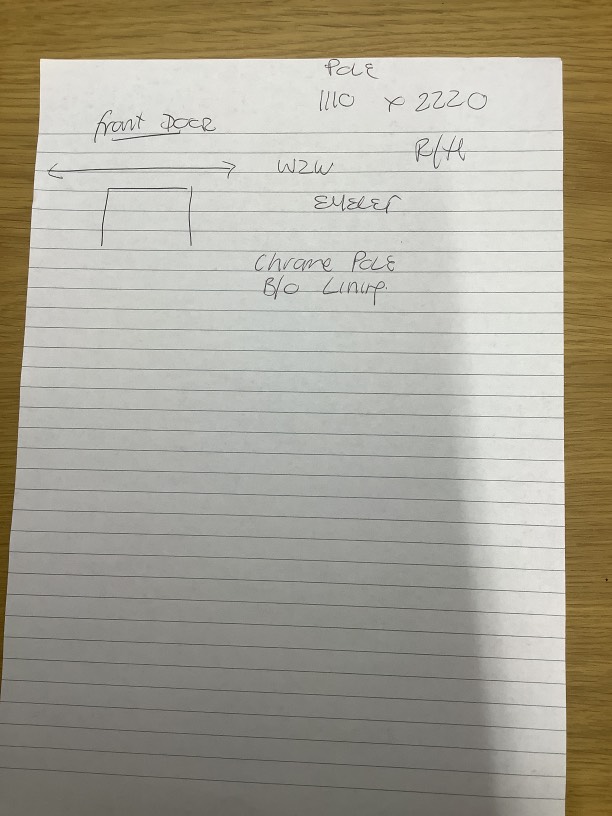 Pole
1110 x 2220
front DOOR
R/H
W2W
EYELET
Chrome Pole
B/O Lining